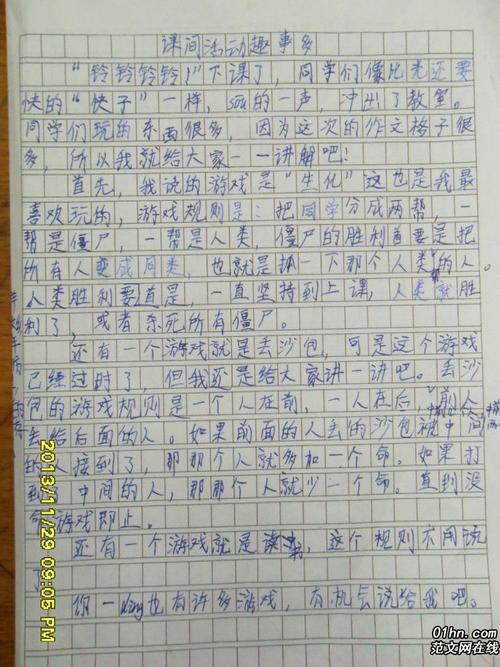 课间活动趣事多
“铃铃铃铃！”下课了，同学们像比光还要
快的“快子”一样，sou的一声，冲出了教室。
同学们玩的东西很多，因为这次的作文格子很
多，所以我就给大家一一讲解吧！
首先，我说的游戏是“生化”这也是我最
喜欢玩的，游戏规则是：把同学分成两帮，一
帮是僵尸，一帮是人类，僵尸的胜利首要是把
所有人变成同类，也就是抓一下那个人类的人。
人类胜利要首是，一直坚持到上课，人类就胜
利了，或者杀死所有僵尸。
还有一个游戏就是丢沙包，可是这个游戏
已经过时了，但我还是给大家讲一讲吧。丢沙
包的游戏规则是一个人在前，一人在后，前人
丢给后面的人。如果前面的人丢的沙包被中间
的人接到了，那那个人就多加一个命。如果打
到了中间的人，那那个人就少一个命。直到没
命游戏即止。
还有一个游戏就是读书，这个规则不用说
了
你一ding也有许多游戏，有机会说给我吧。
2013/11/29 09:05 PM
01hn.com
范文网在线